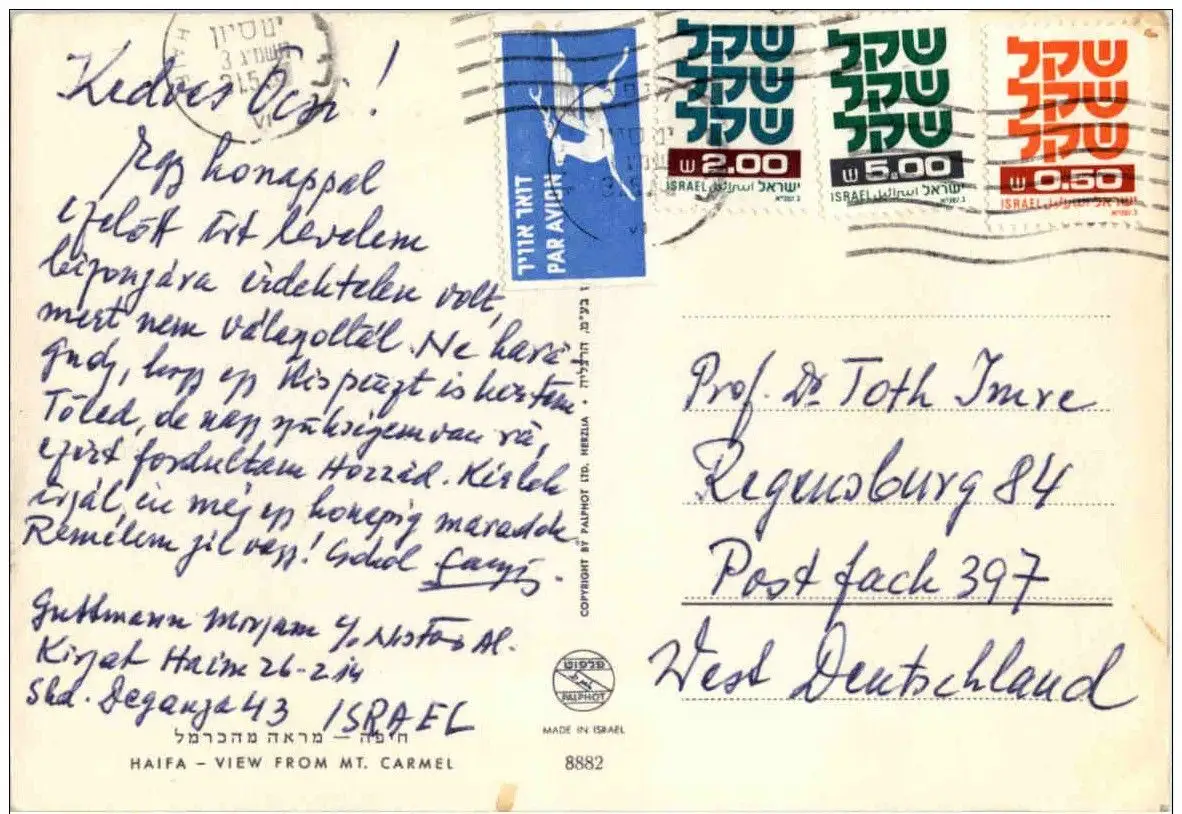 Kedves Öcsi!
Egy honappal
ezelött írt levelem
bizonyára érdektelen volt,
mert nem válaszoltál. Ne hara-
gudj, hogy egy kis pénzt is kértem
Töled, de nagy szükségem van rá,
ezért fordultam Hozzád. Kérlek
írjál, én még egy honapig maradok
Remélem jól vagy! Csokol
Guttmann Morjam c/o
Kirjat Haim 26-2-14
Shd. Deganja 43 ISRAEL
חיפה – מראה מהכרמל
HAIFA – VIEW FROM MT. CARMEL
דואר אוויר
PAR AVION
שקל
שקל
שקל
2.00
ISRAEL اسرائيل ישראל
שקל
שקל
שקל
5.00
ISRAEL اسرائيل ישראל
שקל
שקל
שקל
0.50
ISRAEL اسرائيل ישראל
COPYRIGHT BY PALPHOT LTD. HERZLIA • בע"מ, הרצליה
פלפוט
PALPHOT
MADE IN ISRAEL
8882
Prof. Dr. Toth Imre
Regensburg 84
Postfach 397
West Deutschland